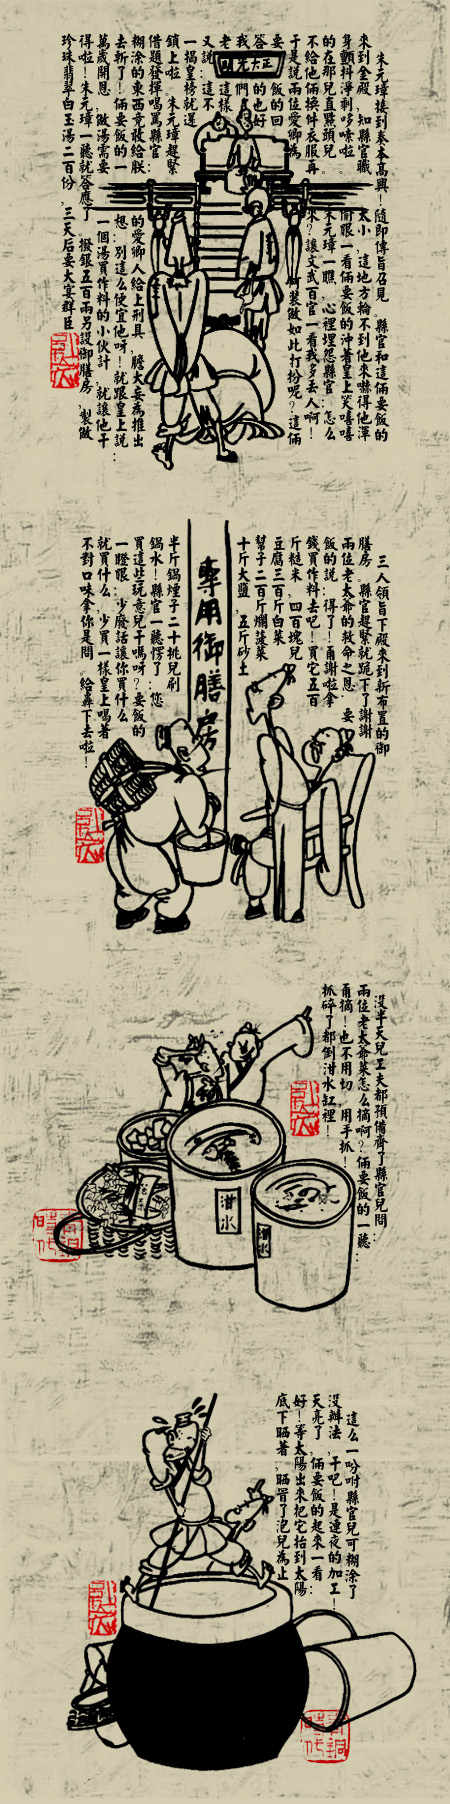 朱元璋接到奏本高興！隨即傳旨召見。縣官和這倆要飯的
來到金殿，知縣官職太小，這地方輪不到他來嚇得他渾
身顫抖淨剩哆嗦啦。偷眼一看倆要飯的沖著皇上笑嘻嘻
的在那兒直點頭兒。朱元璋一瞧，心裡埋怨縣官：怎么
不給他倆換件衣服再來？讓文武百官一看我多丟人啊！
于是說兩位愛卿為何裝做如此打扮呢？這倆
要飯的回
答的也好
我們
老這樣
又說：這不
一揭皇榜就還
鎖上啦。朱元璋趕緊
借題發揮唱萬縣官：
糊涂的東西竟敢給朕的愛卿人給上刑具，膽大妄為推出
去斬了！倆要飯的一想：別這么便宜他呀！就跟皇上說：
萬歲開恩，做湯需要一個湯買作料的小伙計，就讓他干
得啦！朱元璋一聽就答應了。撥銀五百兩另設御膳房，製做
珍珠翡翠白玉湯二百份，三天后要大宴群臣
正大光明
三人領旨下殿來到新布置的御
膳房。縣官趕緊就跪下了謝謝
兩位老太爺的救命之恩。要
飯的說：得了！甭謝啦拿
錢買作料去吧！買它五百
斤糙米，四百塊兒
豆腐三百斤白菜
幫子二百斤爛菠菜
十斤大鹽，五斤砂土
半斤鍋煙子二十挑兒刷
鍋水！縣官一聽愣了：您
買這些玩意兒干嗎呀？要飯的
一瞪眼：少廢話讓你買什么
就買什么，少買一樣皇上喝著
不對口味拿你是問。給轟下去啦！
專用御膳房
沒半天兒工夫都預備齊了縣官兒問：
兩位老太爺菜怎么摘啊？倆要飯的一聽：
甭摘！也不用切，用手抓！
抓碎了都倒泔水缸裡！
泔水
泔水
這么一吩咐縣官兒可糊涂了
沒辦法，干吧！是連夜的加工！
天亮了，倆要飯的起來一看：
好！等太陽出來把它抬到太陽
底下晒著，晒冒了泡兒為止